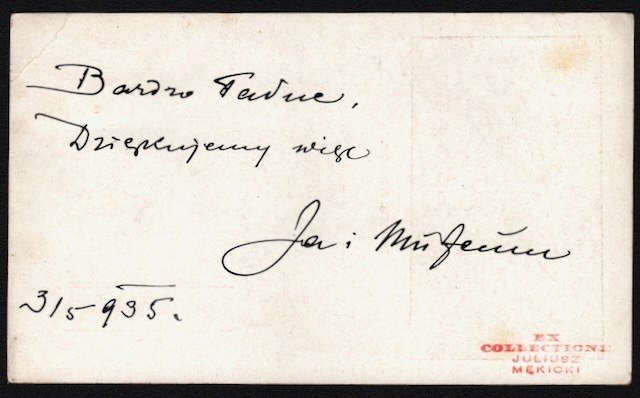 Bardzo Ładne,
Dziękujemy więc
Ja i Muzeum
3/5 935.
EX
COLLECTIONE
JULIUSZ
MĘKICKI